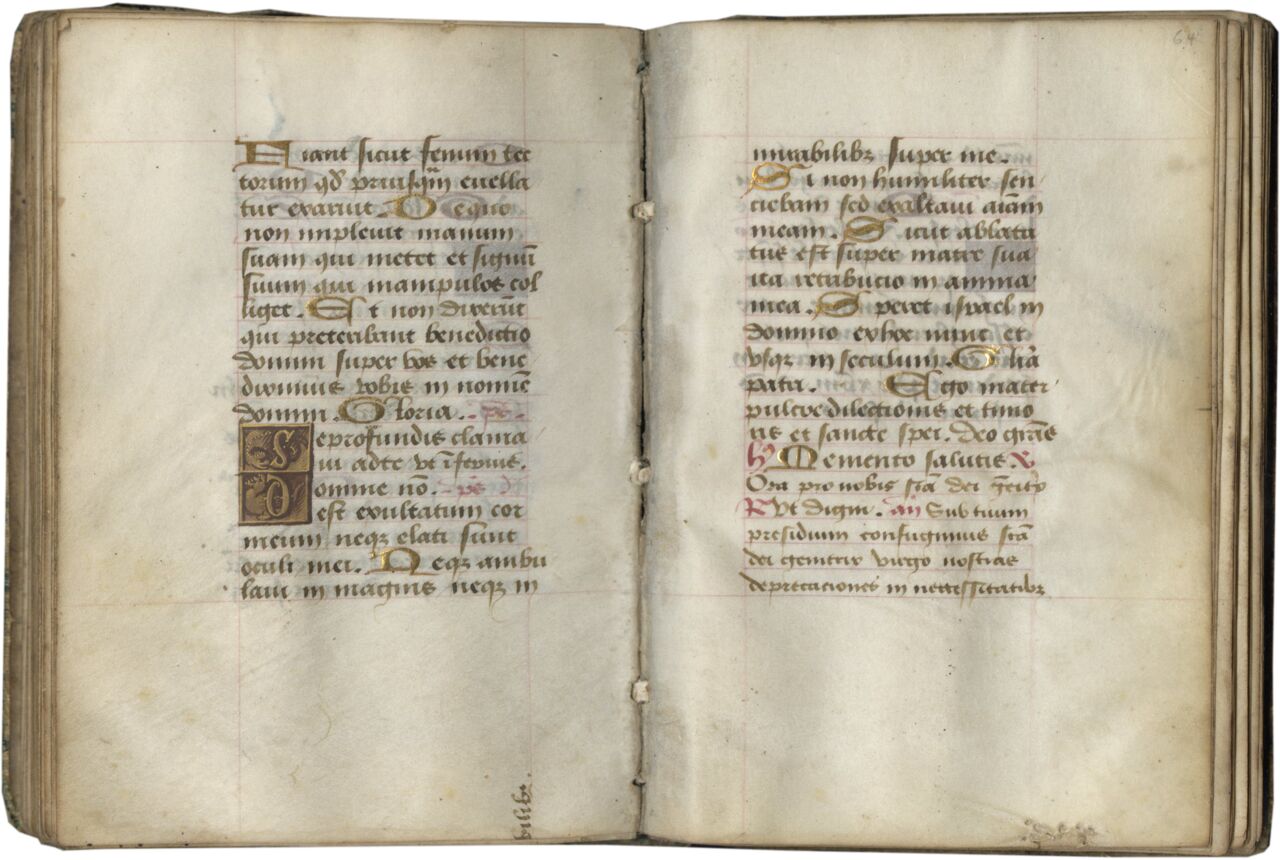 Fiant sicut fenum tec
torum qd priusqm euella
tur exaruit. De quo
non impleuit manum
suam qui metet et signū
suum qui manipulos col
liget. Et non dixerūt
qui preteribant benedictio
domini super vos et bene
diximus vobis in nomīe
domini. Gloria. ps.
Deprofundis clama
ui adte vt īferius.
Domine nō. ps
est exultatum cor
meum neqz elati sunt
oculi mei. Neqz ambu
laui in magnis neqz in
bilibz.
64
mirabilibz super me.
Si non humiliter sen
ciebam sed exaltaui aīam
meam. Sicut ablacta
tus est super matre sua
ita retribucio in anima
mea. Speret israel in
domino exhoc nunc et
vsqz in seculum. Glīa
patri. Ego mater
pulcre dilectionis et timo
ris et sancte spei. Deo grās
hy Memento salutis. v
Ora pro nobis scā dei geītx
R Vt digni. añ Sub tuum
presidium confugimus scā
dei genitrix virgo nostras
deprecaciones in necessitatibz